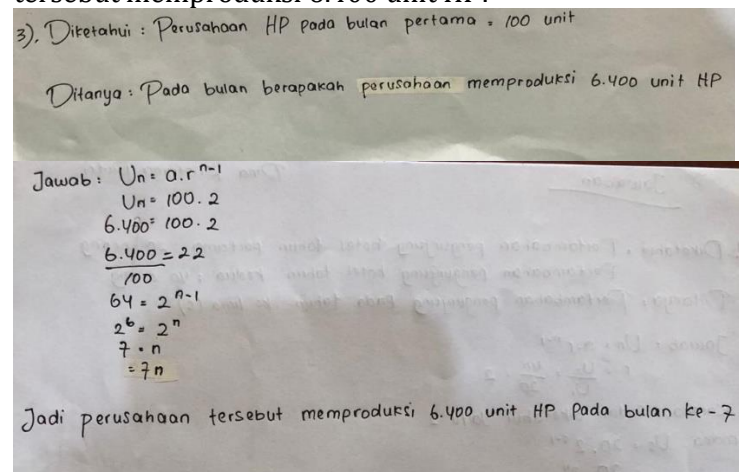 3). Diketahui : Perusahaan HP pada bulan pertama = 100 unit
Ditanya : Pada bulan berapakah perusahaan memproduksi 6.400 unit HP
Jawab : Un = a.r^n-1
Un = 100. 2
6.400 = 100. 2
6.400 = 22
100
64 = 2^n-1
2^6 = 2^n
7 = n
= 7n
Jadi perusahaan tersebut memproduksi 6.400 unit HP Pada bulan ke-7